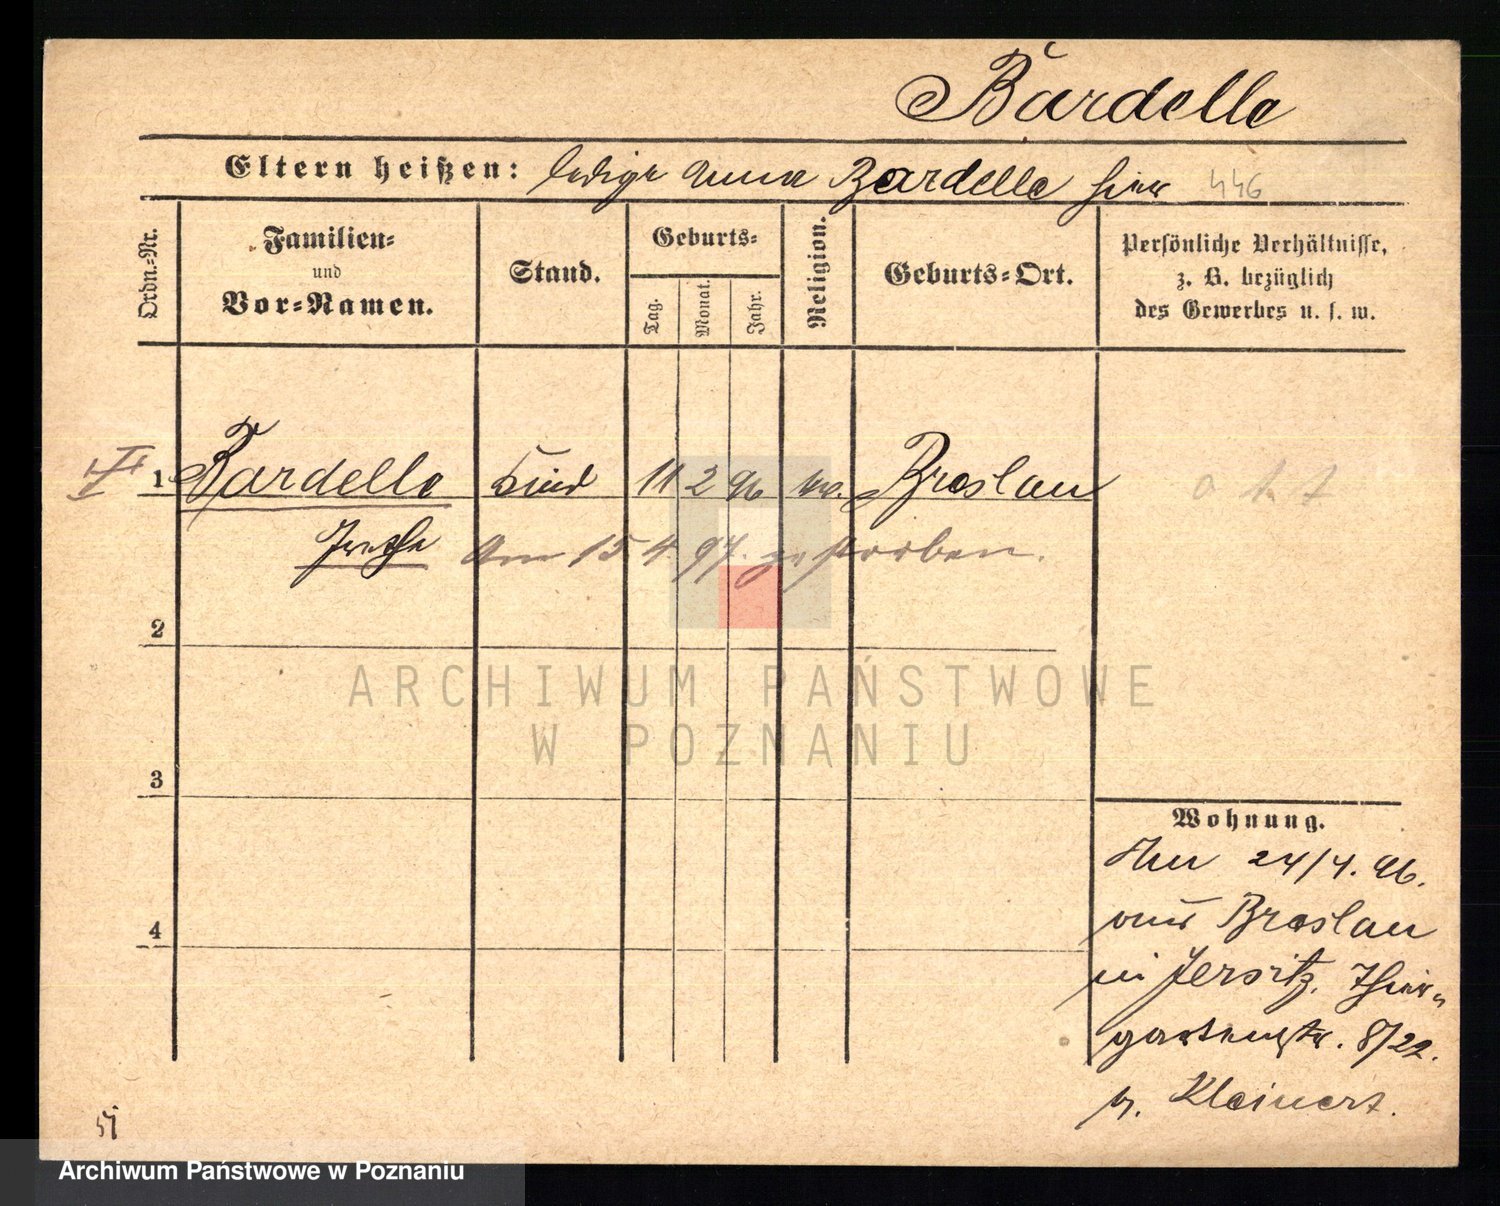 Bardelle
Eltern heißen: ledige Anna Bardelle hier 446
Ordn.-Nr.
Familien-
und
Vor-Namen.
Stand.
Geburts-
Tag.
Monat.
Jahr.
Religion.
Geburts-Ort.
Persönliche Verhältnisse,
z. B. bezüglich
des Gewerbes u. s. w.
1 Bardelle Kind 11 2 96 ev. Breslau
am 15 4. 97. gestorben.
2
3
4
Wohnung.
Am 24/4. 96.
aus Breslau
in Jersitz, Thier-
gartenstr. 8/22.
b. Kleinert.
ARCHIWUM PAŃSTWOWE
W POZNANIU
Archiwum Państwowe w Poznaniu